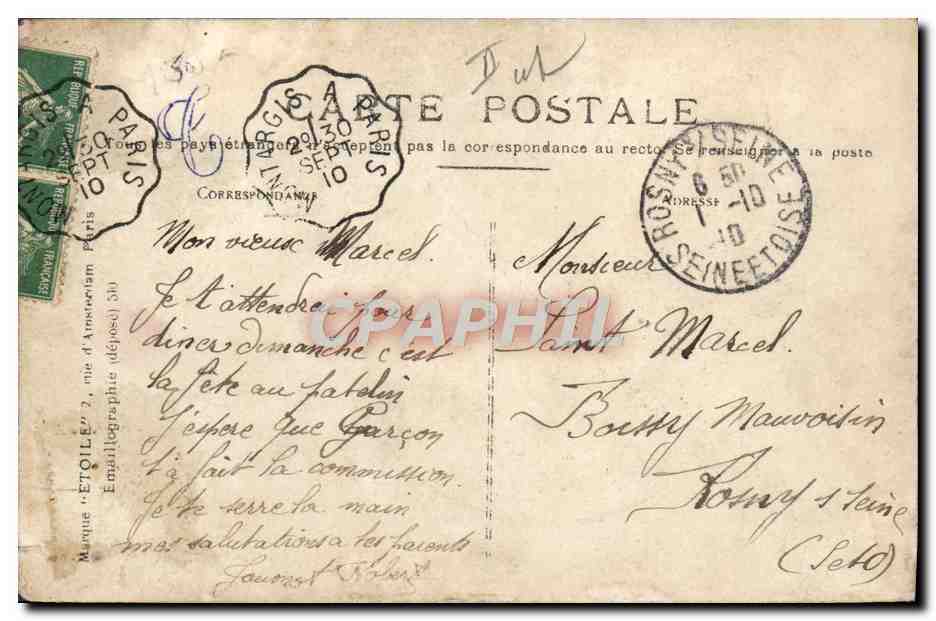 CARTE POSTALE
Tous les pays étrangers n'acceptent pas la correspondance au recto. Se renseigner à la poste
CORRESPONDANCE
ADRESSE
MONTARGIS A PARIS
2° 30
SEPT
10
MONTARGIS A PARIS
2° 30
SEPT
10
ROSNY S/ SEINE
6 50
1 -10
10
SEINE ET OISE
REPUBLIQUE FRANÇAISE
REPUBLIQUE FRANÇAISE
Marque "ETOILE" 2, rue d'Amsterdam Paris
Emaillographie (déposé) 510
Mon vieux Marcel.
Je t'attendrai pour
diner dimanche c'est
la fête au patelin
J'espere que Garçon
t'a fait la commission.
Je te serre la main
mes salutations a tes parents
Robert
Monsieur
Saint Marcel.
Boissy Mauvoisin
Rosny s Seine
(S et O)
CPAPHIL